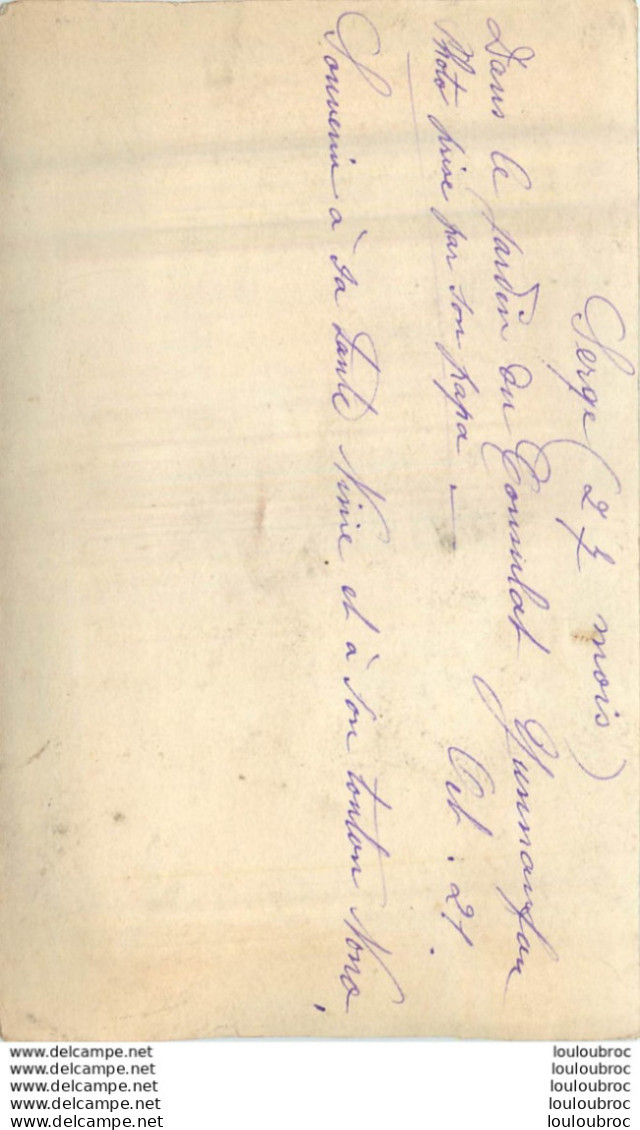 Serge (27 mois)
Dans le jardin du Consulat Yunnanfou
Photo prise par son papa - Oct. 21.
Souvenir à sa tante Ninie et à son tonton Nono,
www.delcampe.net louloubroc
www.delcampe.net louloubroc
www.delcampe.net louloubroc
www.delcampe.net louloubroc
www.delcampe.net louloubroc